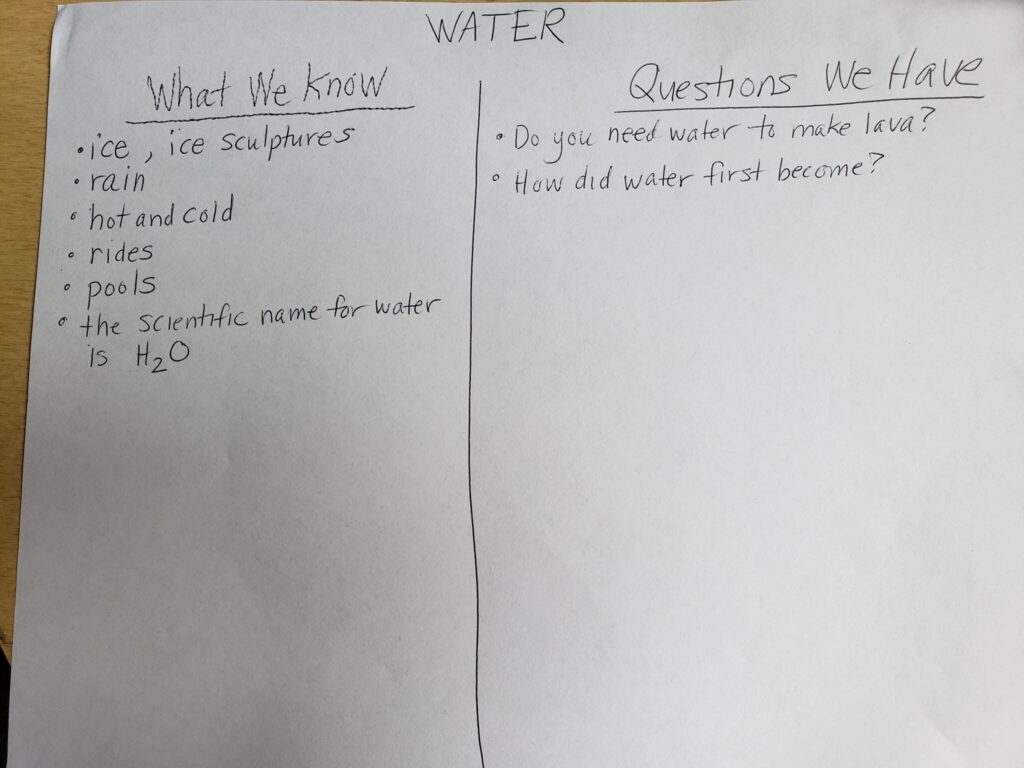 WATER
What We Know
• ice, ice sculptures
• rain
• hot and cold
• rides
• pools
• the scientific name for water
is H₂O
Questions We Have
• Do you need water to make lava?
• How did water first become?